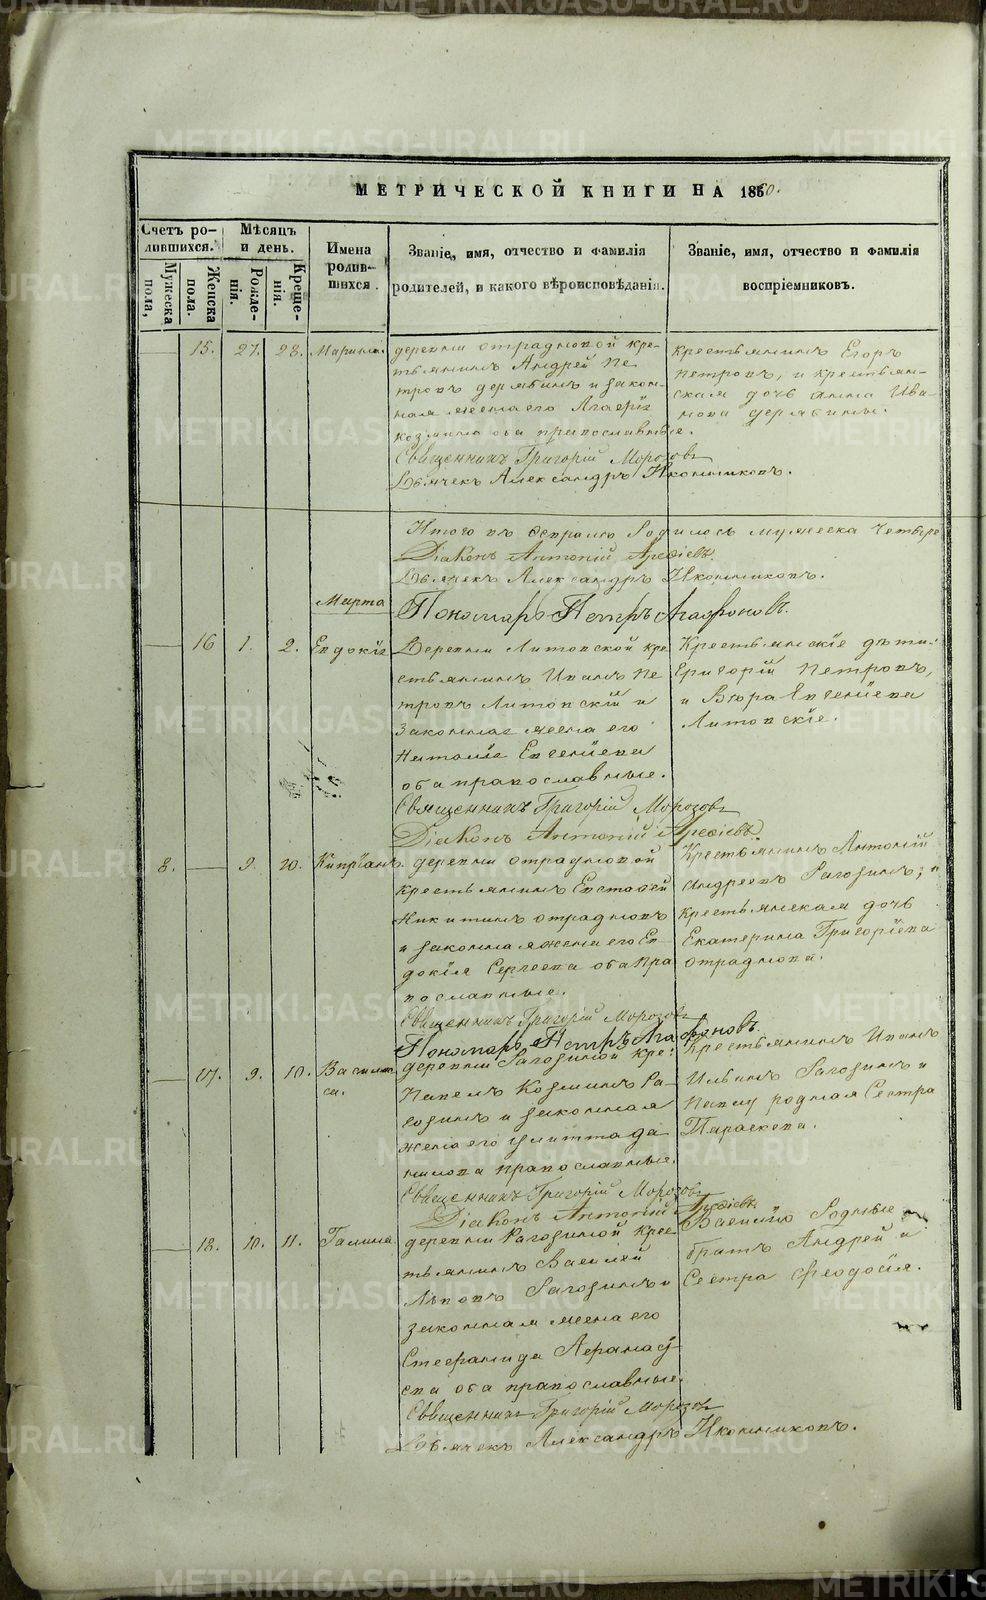 МЕТРИЧЕСКОЙ КНИГИ НА 1860.
Счетъ ро-
дившихся.
Мужеска
пола,
Женска
пола.
Мѣсяцъ
и день.
Рожде-
нія.
Креще-
нія.
Имена
родив-
шихся.
Званіе, имя, отчество и фамилія
родителей, и какого вѣроисповѣданія.
Званіе, имя, отчество и фамилія
воспріемниковъ.
15. 27. 28. Марина.
деревни отрадновой кре-
стьянинъ Андрей Пе-
тровъ дерябинъ и закон-
ная жена его
козмина оба православные.
Священникъ Григорій Морозовъ
Дьячекъ Александръ Иконниковъ.
крестьянинъ Егоръ
петровъ, и крестьян-
ская дочь анна Ива-
нова дерябины.
Итого въ родилось мужеска четыре
Діаконъ Антоній
Дьячекъ Александръ Иконниковъ.
Пономарь Петръ Агафоновъ.
Марта
16 1. 2. Евдокія
Деревни Литовской кре
стьянинъ Иванъ Пе
тровъ Литовскій и
Законная жена его
Наталія Евгеніева
оба православные.
Священникъ Григорій Морозовъ
Діаконъ Антоній
Крестьянскіе дѣти:
Григорій Петровъ,
и Вѣра Евгеніева
Литовскіе.
8. 9. 10. Кипріанъ.
деревни отрадновой
крестьянинъ Евстафей
Никитинъ отрадновъ
и законная жена его Ев-
докія Сергеева оба пра
вославные.
Священникъ Григорій Морозовъ
Пономарь Петръ Агафоновъ.
Крестьянинъ Антоній
андреевъ Рагозинъ; и
крестьянская дочь
Екатерина Григоріева
отраднова.
17. 9. 10. Васили-
са.
деревни Рагозиной кре:
Павелъ Козминъ Ра-
гозинъ и законная
жена его улитта да
нилова православные.
Священникъ Григорій Морозовъ
Діаконъ Антоній
Крестьянинъ Иванъ
Ильинъ Рагозинъ и
Павлу родная Сестра
Параскева.
18. 10. 11. Галина
деревни Рагозиной крес
тьянинъ Василей
Львовъ Рагозинъ и
законная жена его
Стефанида Афанась
ева оба православные.
Священникъ Григорій Морозовъ
Дьячекъ Александръ Иконниковъ.
Василію Родные
братъ Андрей и
Сестра Феодосія.
METRIKI.GASO-URAL.RU